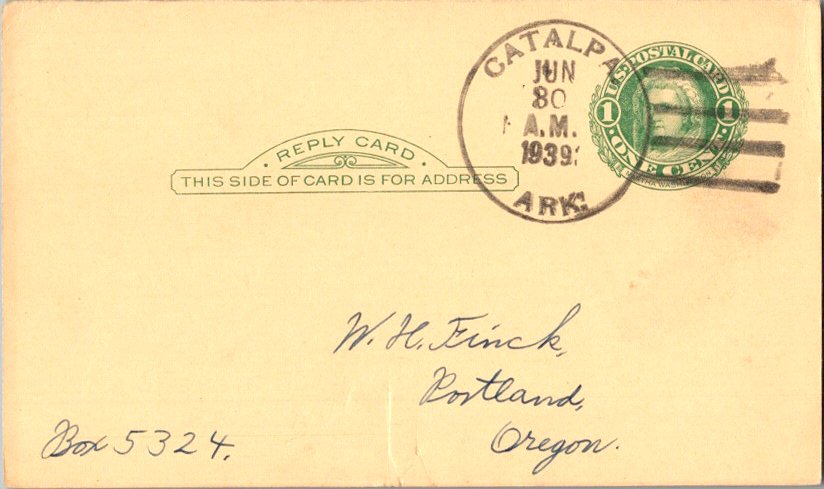 CATALPA
JUN
30
A.M.
1939
ARK.
U.S. POSTAL CARD
1 1
ONE CENT
MARTHA WASHINGTON
REPLY CARD
THIS SIDE OF CARD IS FOR ADDRESS
W. H. Finck,
Portland,
Oregon.
Box 5324.